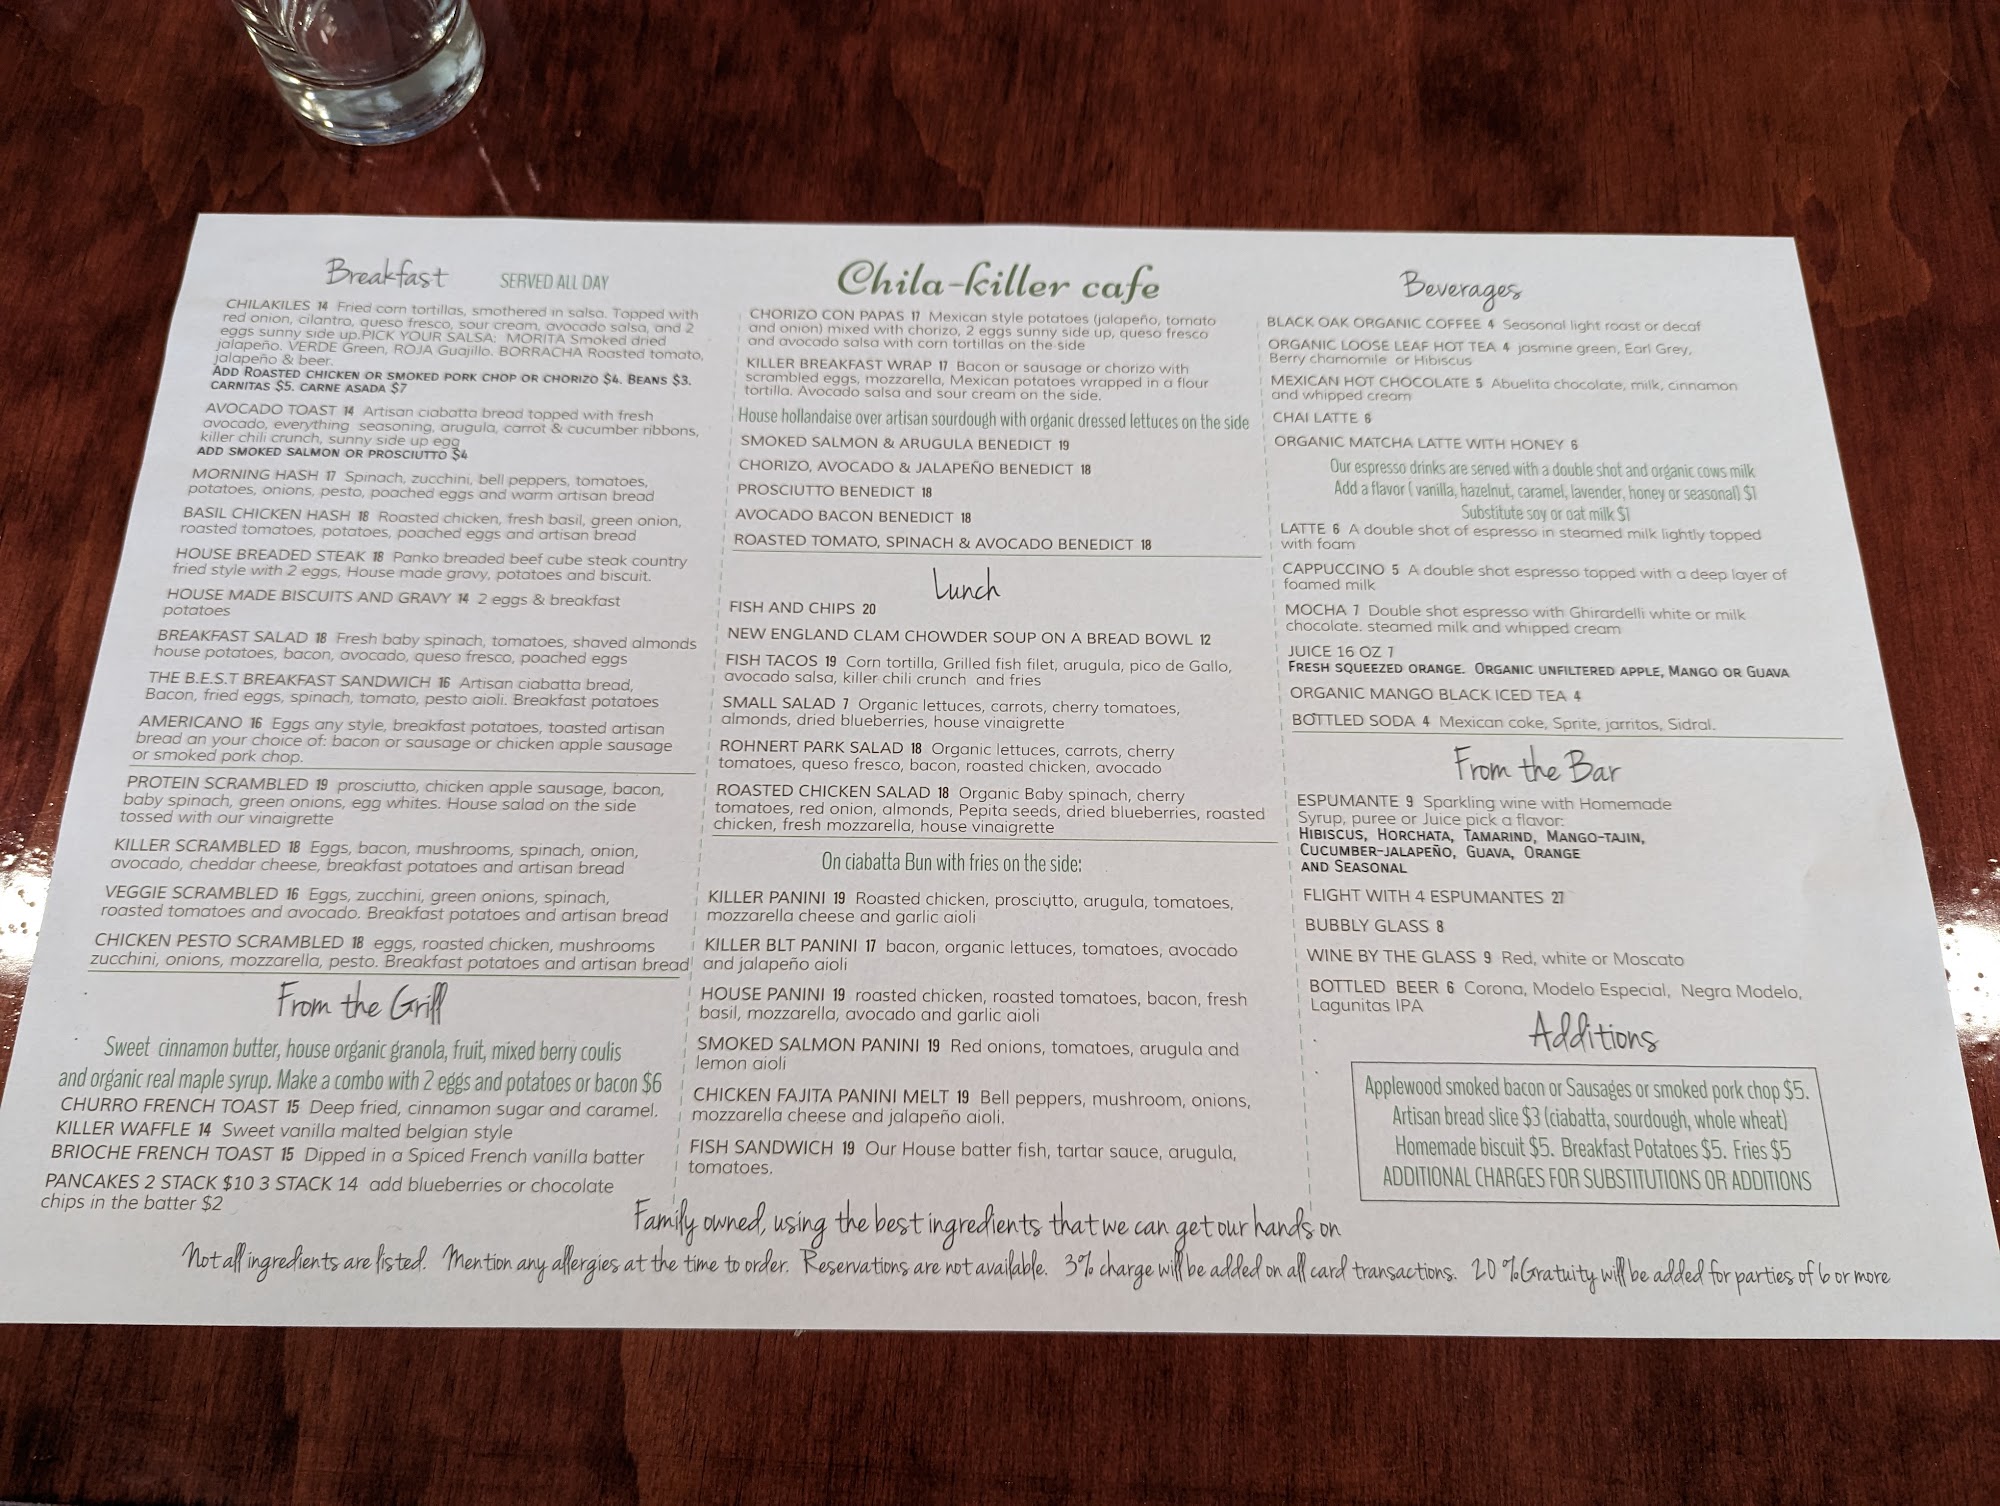 Breakfast SERVED ALL DAY
CHILAKILES 14 Fried corn tortillas, smothered in salsa. Topped with
red onion, cilantro, queso fresco, sour cream, avocado salsa, and 2
eggs sunny side up.PICK YOUR SALSA: MORITA Smoked dried
jalapeño. VERDE Green, ROJA Guajillo. BORRACHA Roasted tomato,
jalapeño & beer.
ADD ROASTED CHICKEN OR SMOKED PORK CHOP OR CHORIZO $4. BEANS $3.
CARNITAS $5. CARNE ASADA $7
AVOCADO TOAST 14 Artisan ciabatta bread topped with fresh
avocado, everything seasoning, arugula, carrot & cucumber ribbons,
killer chili crunch, sunny side up egg
ADD SMOKED SALMON OR PROSCIUTTO $4
MORNING HASH 17 Spinach, zucchini, bell peppers, tomatoes,
potatoes, onions, pesto, poached eggs and warm artisan bread
BASIL CHICKEN HASH 18 Roasted chicken, fresh basil, green onion,
roasted tomatoes, potatoes, poached eggs and artisan bread
HOUSE BREADED STEAK 18 Panko breaded beef cube steak country
fried style with 2 eggs, House made gravy, potatoes and biscuit.
HOUSE MADE BISCUITS AND GRAVY 14 2 eggs & breakfast
potatoes
BREAKFAST SALAD 18 Fresh baby spinach, tomatoes, shaved almonds
house potatoes, bacon, avocado, queso fresco, poached eggs
THE B.E.S.T BREAKFAST SANDWICH 16 Artisan ciabatta bread,
Bacon, fried eggs, spinach, tomato, pesto aioli. Breakfast potatoes
AMERICANO 16 Eggs any style, breakfast potatoes, toasted artisan
bread an your choice of: bacon or sausage or chicken apple sausage
or smoked pork chop.
PROTEIN SCRAMBLED 19 prosciutto, chicken apple sausage, bacon,
baby spinach, green onions, egg whites. House salad on the side
tossed with our vinaigrette
KILLER SCRAMBLED 18 Eggs, bacon, mushrooms, spinach, onion,
avocado, cheddar cheese, breakfast potatoes and artisan bread
VEGGIE SCRAMBLED 16 Eggs, zucchini, green onions, spinach,
roasted tomatoes and avocado. Breakfast potatoes and artisan bread
CHICKEN PESTO SCRAMBLED 18 eggs, roasted chicken, mushrooms
zucchini, onions, mozzarella, pesto. Breakfast potatoes and artisan bread
From the Grill
Sweet cinnamon butter, house organic granola, fruit, mixed berry coulis
and organic real maple syrup. Make a combo with 2 eggs and potatoes or bacon $6
CHURRO FRENCH TOAST 15 Deep fried, cinnamon sugar and caramel.
KILLER WAFFLE 14 Sweet vanilla malted belgian style
BRIOCHE FRENCH TOAST 15 Dipped in a Spiced French vanilla batter
PANCAKES 2 STACK $10 3 STACK 14 add blueberries or chocolate
chips in the batter $2
Chila-killer cafe
CHORIZO CON PAPAS 17 Mexican style potatoes (jalapeño, tomato
and onion) mixed with chorizo, 2 eggs sunny side up, queso fresco
and avocado salsa with corn tortillas on the side
KILLER BREAKFAST WRAP 17 Bacon or sausage or chorizo with
scrambled eggs, mozzarella, Mexican potatoes wrapped in a flour
tortilla. Avocado salsa and sour cream on the side.
House hollandaise over artisan sourdough with organic dressed lettuces on the side
SMOKED SALMON & ARUGULA BENEDICT 19
CHORIZO, AVOCADO & JALAPEÑO BENEDICT 18
PROSCIUTTO BENEDICT 18
AVOCADO BACON BENEDICT 18
ROASTED TOMATO, SPINACH & AVOCADO BENEDICT 18
Lunch
FISH AND CHIPS 20
NEW ENGLAND CLAM CHOWDER SOUP ON A BREAD BOWL 12
FISH TACOS 19 Corn tortilla, Grilled fish filet, arugula, pico de Gallo,
avocado salsa, killer chili crunch and fries
SMALL SALAD 7 Organic lettuces, carrots, cherry tomatoes,
almonds, dried blueberries, house vinaigrette
ROHNERT PARK SALAD 18 Organic lettuces, carrots, cherry
tomatoes, queso fresco, bacon, roasted chicken, avocado
ROASTED CHICKEN SALAD 18 Organic Baby spinach, cherry
tomatoes, red onion, almonds, Pepita seeds, dried blueberries, roasted
chicken, fresh mozzarella, house vinaigrette
On ciabatta Bun with fries on the side:
KILLER PANINI 19 Roasted chicken, prosciutto, arugula, tomatoes,
mozzarella cheese and garlic aioli
KILLER BLT PANINI 17 bacon, organic lettuces, tomatoes, avocado
and jalapeño aioli
HOUSE PANINI 19 roasted chicken, roasted tomatoes, bacon, fresh
basil, mozzarella, avocado and garlic aioli
SMOKED SALMON PANINI 19 Red onions, tomatoes, arugula and
lemon aioli
CHICKEN FAJITA PANINI MELT 19 Bell peppers, mushroom, onions,
mozzarella cheese and jalapeño aioli.
FISH SANDWICH 19 Our House batter fish, tartar sauce, arugula,
tomatoes.
Beverages
BLACK OAK ORGANIC COFFEE 4 Seasonal light roast or decaf
ORGANIC LOOSE LEAF HOT TEA 4 jasmine green, Earl Grey,
Berry chamomile or Hibiscus
MEXICAN HOT CHOCOLATE 5 Abuelita chocolate, milk, cinnamon
and whipped cream
CHAI LATTE 6
ORGANIC MATCHA LATTE WITH HONEY 6
Our espresso drinks are served with a double shot and organic cows milk
Add a flavor ( vanilla, hazelnut, caramel, lavender, honey or seasonal) $1
Substitute soy or oat milk $1
LATTE 6 A double shot of espresso in steamed milk lightly topped
with foam
CAPPUCCINO 5 A double shot espresso topped with a deep layer of
foamed milk
MOCHA 7 Double shot espresso with Ghirardelli white or milk
chocolate. steamed milk and whipped cream
JUICE 16 OZ 7
FRESH SQUEEZED ORANGE. ORGANIC UNFILTERED APPLE, MANGO OR GUAVA
ORGANIC MANGO BLACK ICED TEA 4
BOTTLED SODA 4 Mexican coke, Sprite, jarritos, Sidral.
From the Bar
ESPUMANTE 9 Sparkling wine with Homemade
Syrup, puree or Juice pick a flavor:
HIBISCUS, HORCHATA, TAMARIND, MANGO-TAJIN,
CUCUMBER-JALAPEÑO, GUAVA, ORANGE
AND SEASONAL
FLIGHT WITH 4 ESPUMANTES 27
BUBBLY GLASS 8
WINE BY THE GLASS 9 Red, white or Moscato
BOTTLED BEER 6 Corona, Modelo Especial, Negra Modelo,
Lagunitas IPA
Additions
Applewood smoked bacon or Sausages or smoked pork chop $5.
Artisan bread slice $3 (ciabatta, sourdough, whole wheat)
Homemade biscuit $5. Breakfast Potatoes $5. Fries $5
ADDITIONAL CHARGES FOR SUBSTITUTIONS OR ADDITIONS
Family owned, using the best ingredients that we can get our hands on
Not all ingredients are listed. Mention any allergies at the time to order. Reservations are not available. 3% charge will be added on all card transactions. 20 % Gratuity will be added for parties of 6 or more